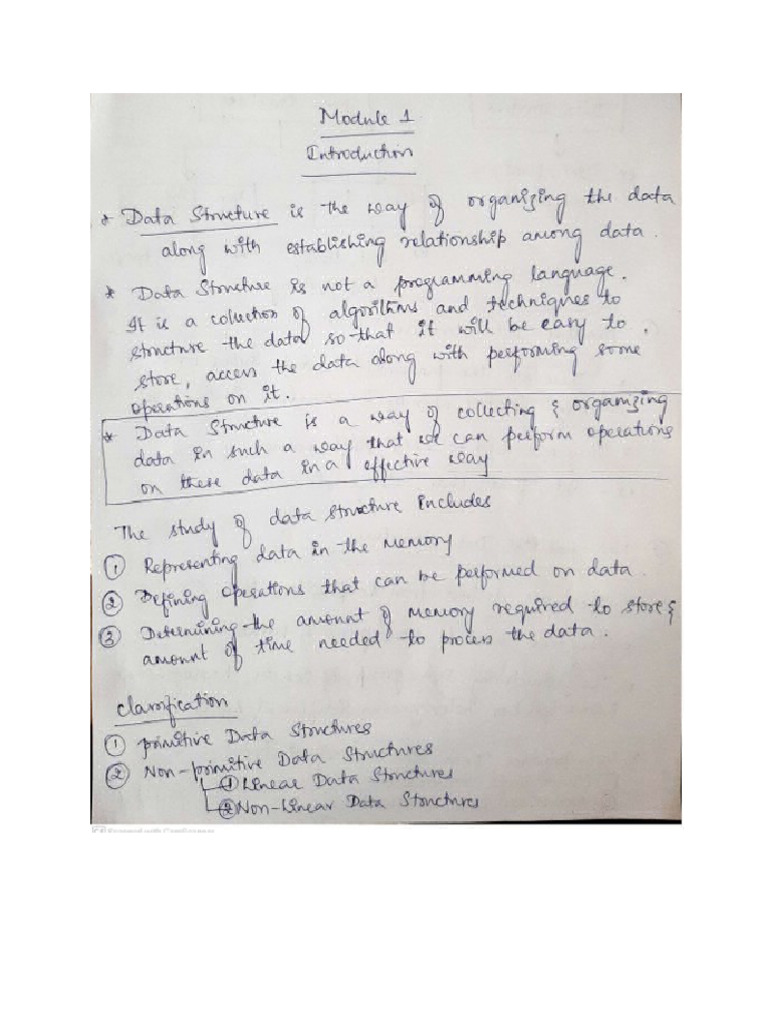 Module 1
Introduction
* Data Structure is the way of organizing the data
along with establishing relationship among data.
* Data Structure is not a programming language.
It is a collection of algorithms and techniques to
structure the data so that it will be easy to
store, access the data along with performing some
operations on it.
* Data Structure is a way of collecting & organizing
data in such a way that we can perform operations
on these data in a effective way
The study of data structure includes
① Representing data in the memory
② Defining operations that can be performed on data.
③ Determining the amount of memory required to store &
amount of time needed to process the data.
Classification
① primitive Data Structures
② Non-primitive Data Structures
① Linear Data Structures
② Non-Linear Data Structures